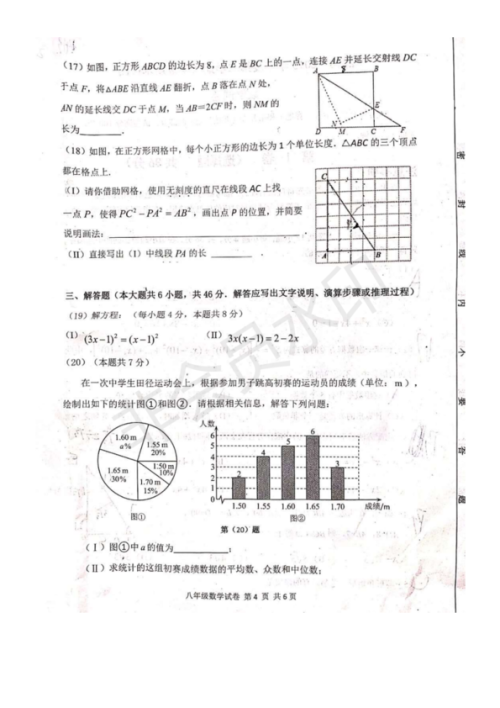 (17)如图，正方形ABCD的边长为8，点E是BC上的一点，连接AE并延长交射线DC
于点F，将△ABE沿直线AE翻折，点B落在点N处，
AN的延长线交DC于点M，当AB=2CF时，则NM的
长为________.
A B E N D M C F
(18)如图，在正方形网格中，每个小正方形的边长为1个单位长度. △ABC的三个顶点
都在格点上.
(I) 请你借助网格，使用无刻度的直尺在线段AC上找
一点P，使得PC²－PA²＝AB²，画出点P的位置，并简要
说明画法：________
(II) 直接写出(I)中线段PA的长________.
C A B
三、解答题（本大题共6小题，共46分．解答应写出文字说明、演算步骤或推理过程）
(19)解方程：（每小题4分，本题共8分）
(I) (3x－1)²＝(x－1)² (II) 3x(x－1)＝2－2x
(20)（本题共7分）
在一次中学生田径运动会上，根据参加男子跳高初赛的运动员的成绩（单位：m），
绘制出如下的统计图①和图②．请根据相关信息，解答下列问题：
1.60m a%
1.55m 20%
1.50m 10%
1.70m 15%
1.65m 30%
图①
人数
6 5 4 3 2 1 0
2 4 5 6 3
1.50 1.55 1.60 1.65 1.70 成绩/m
图②
第（20）题
(I) 图①中a的值为________；
(II) 求统计的这组初赛成绩数据的平均数、众数和中位数；
八年级数学试卷 第4页 共6页
密 封 线 内 不 要 答 题
非会员水印